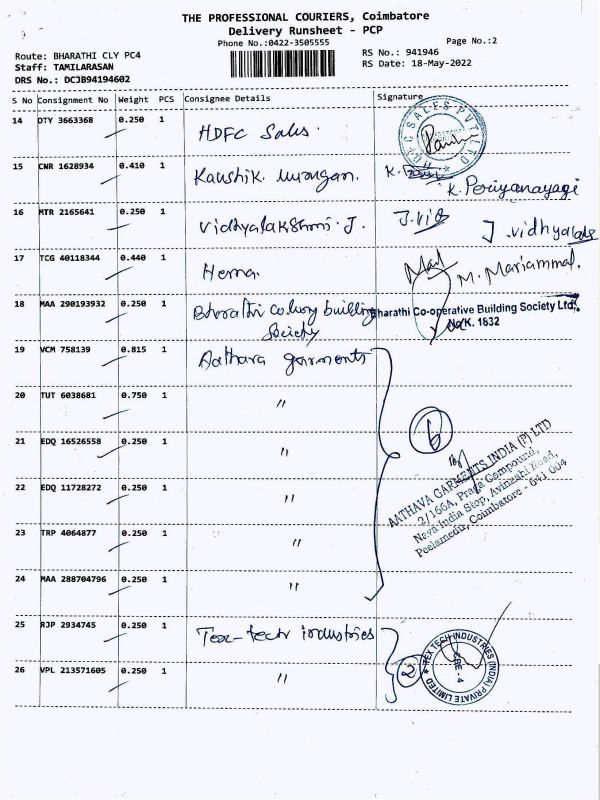 THE PROFESSIONAL COURIERS, Coimbatore
Delivery Runsheet - PCP
Phone No.:0422-3505555
Page No.:2
Route: BHARATHI CLY PC4
RS No.: 941946
Staff: TAMILARASAN
RS Date: 18-May-2022
DRS No.: DCJB94194602
S No Consignment No Weight PCS Consignee Details Signature
14 DTY 3663368 0.250 1 HDFC Sales.
15 CNR 1628934 0.410 1 Kaushik. murongan. K. K. Periyanayagi
16 MTR 2165641 0.250 1 Vidhyalakshmi. J. J. vid J. vidhya
17 TCG 40118344 0.440 1 Hema. M. Mariammal.
18 MAA 290193932 0.250 1 Bharathi colony building Society
Bharathi Co-operative Building Society Ltd.
No.K. 1832
19 VCM 758139 0.815 1 Aathava garments
20 TUT 6038681 0.750 1 "
21 EDQ 16526558 0.250 1 "
6
22 EDQ 11728272 0.250 1 "
AATHAVA GARMENTS INDIA (P) LTD
2/166A, Praya Compound,
Nava India Stop, Avinashi Road,
Peelamedu, Coimbatore - 641 004
23 TRP 4064877 0.250 1 "
24 MAA 288704796 0.250 1 "
25 RJP 2934745 0.250 1 Tex-tech industries
26 VPL 213571605 0.250 1 "
2
TEX TECH INDUSTRIES (INDIA) PRIVATE LIMITED
CBE - 4